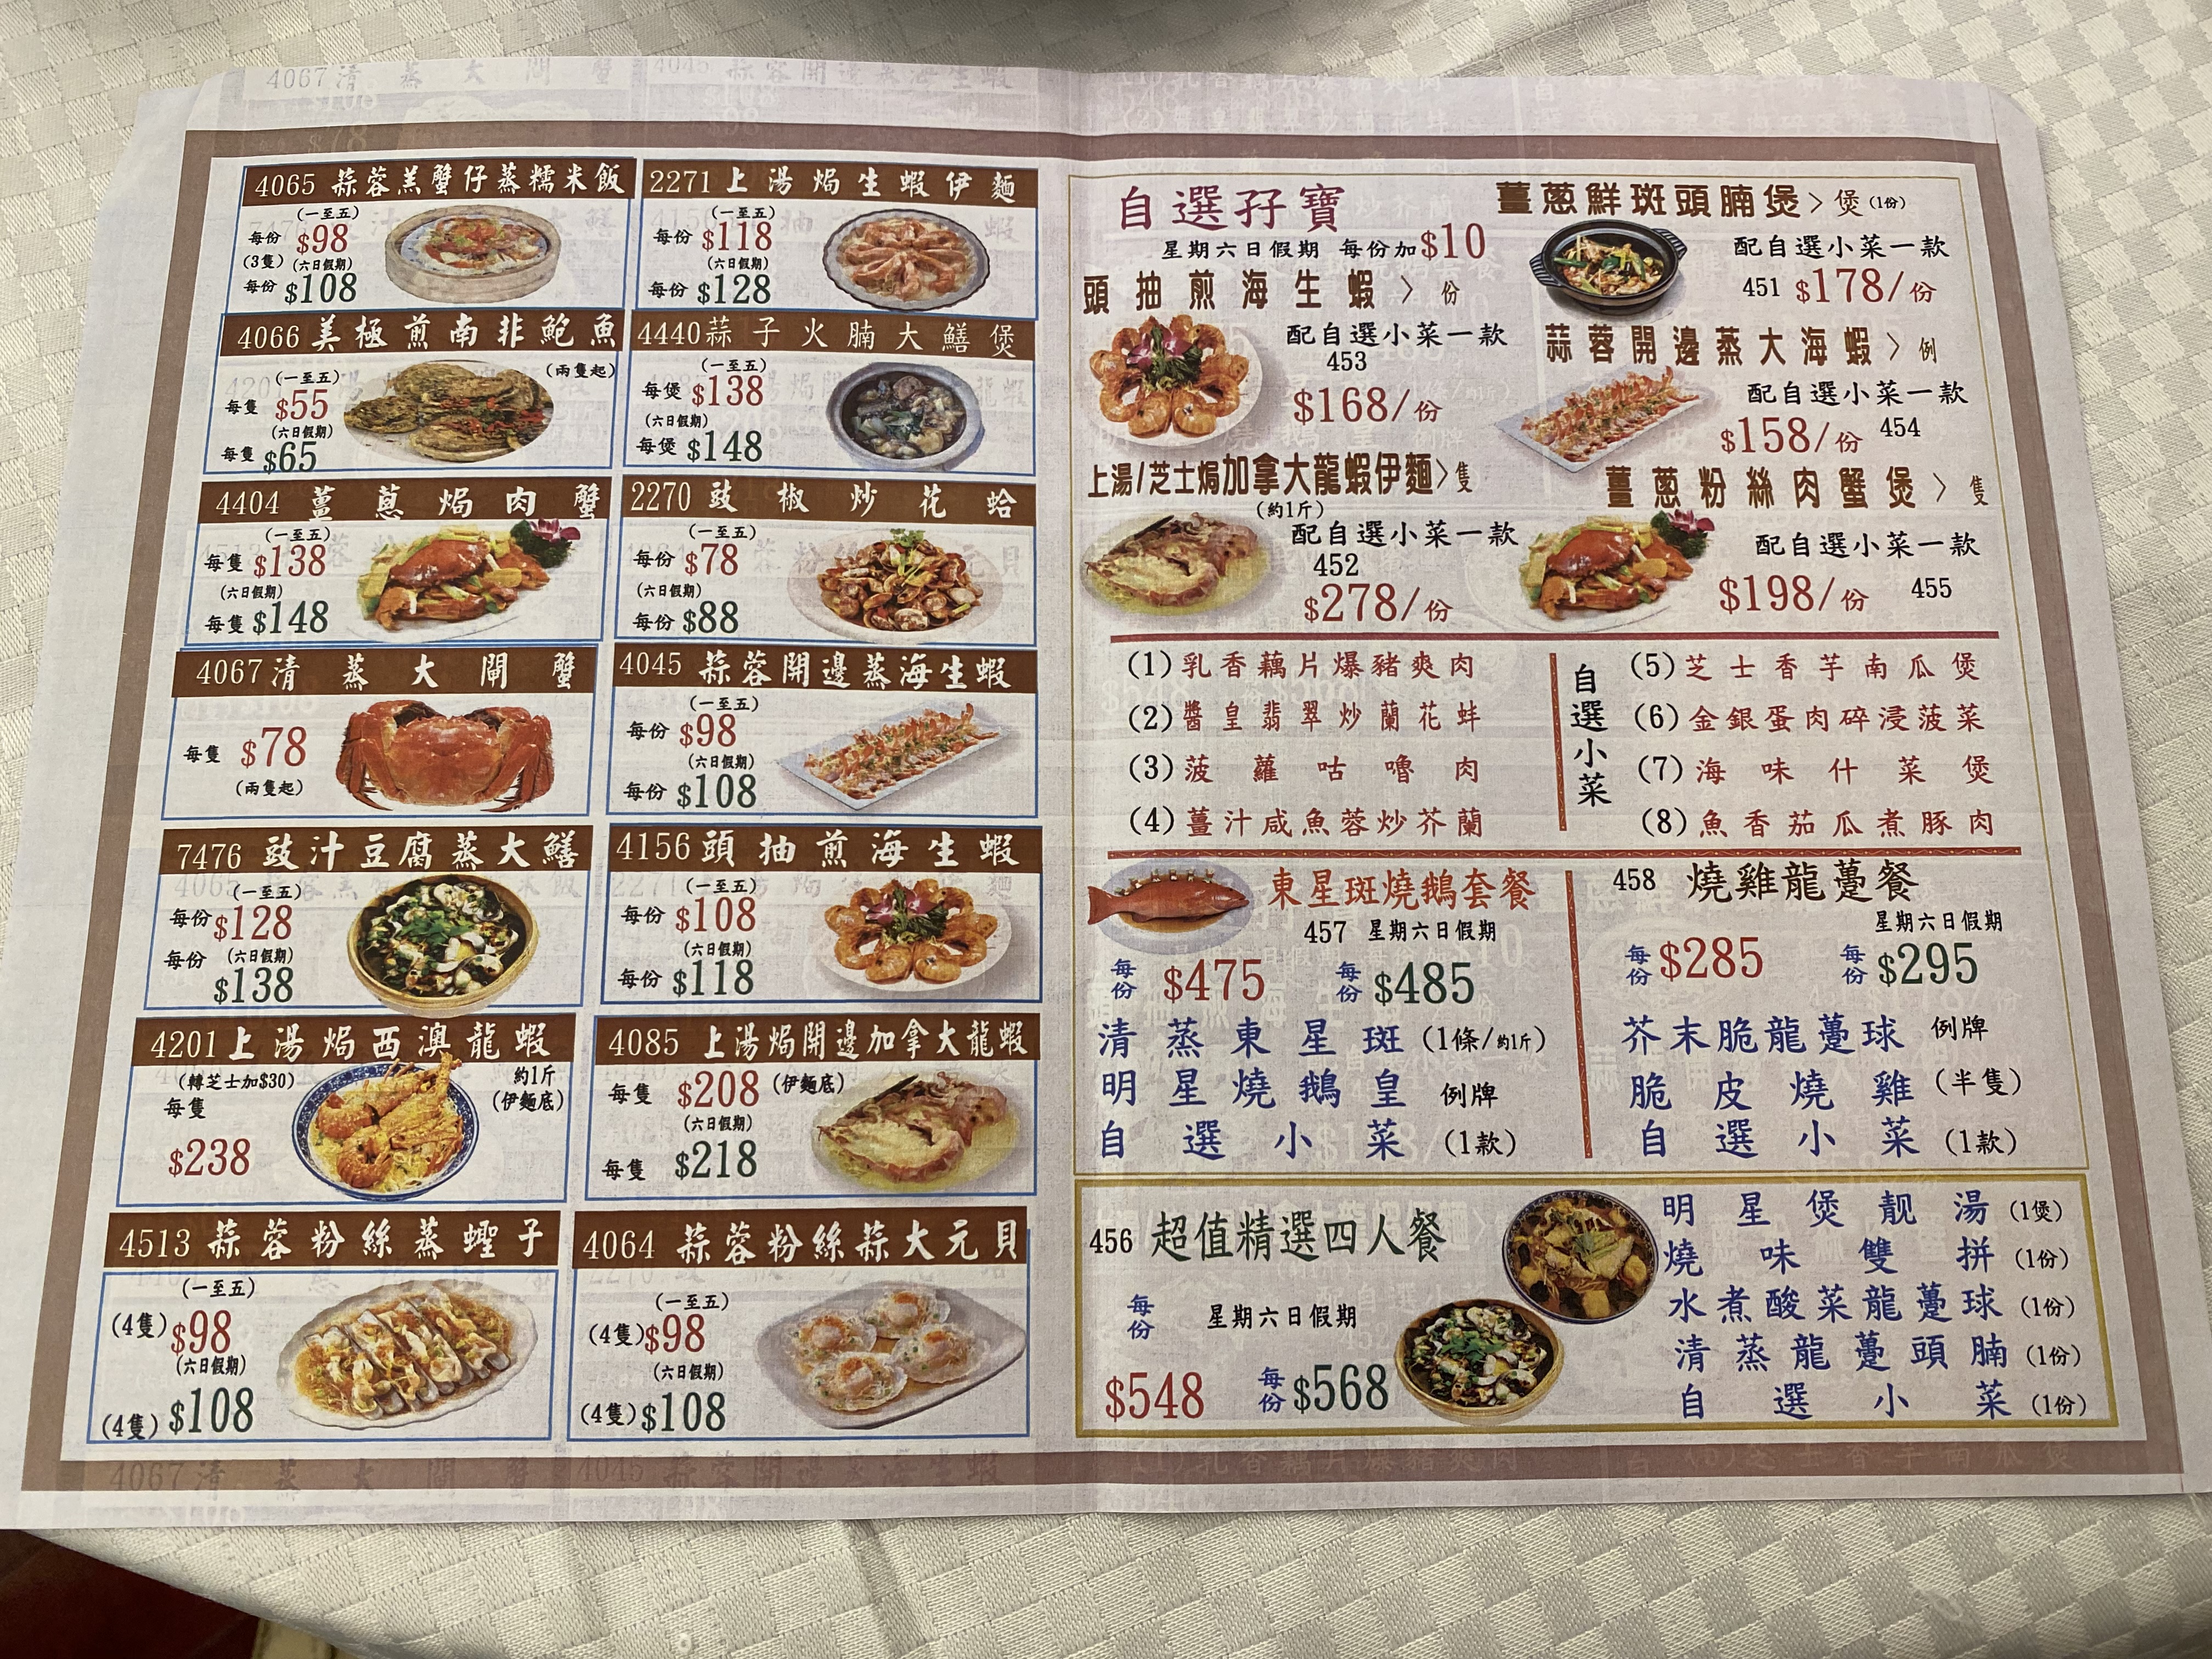 4065 蒜蓉羔蟹仔蒸糯米飯
(一至五)
每份 $98
(3隻) (六日假期)
每份 $108
2271 上湯焗生蝦伊麵
(一至五)
每份 $118
(六日假期)
每份 $128
4066 美極煎南非鮑魚
(一至五) (兩隻起)
每隻 $55
(六日假期)
每隻 $65
4440 蒜子火腩大鱔煲
(一至五)
每煲 $138
(六日假期)
每煲 $148
4404 薑蔥焗肉蟹
(一至五)
每隻 $138
(六日假期)
每隻 $148
2270 豉椒炒花蛤
(一至五)
每份 $78
(六日假期)
每份 $88
4067 清蒸大閘蟹
每隻 $78
(兩隻起)
4045 蒜蓉開邊蒸海生蝦
(一至五)
每份 $98
(六日假期)
每份 $108
7476 豉汁豆腐蒸大鱔
(一至五)
每份 $128
每份 (六日假期)
$138
4156 頭抽煎海生蝦
(一至五)
每份 $108
(六日假期)
每份 $118
4201 上湯焗西澳龍蝦
(轉芝士加$30) 約1斤
每隻 (伊麵底)
$238
4085 上湯焗開邊加拿大龍蝦
每隻 $208 (伊麵底)
(六日假期)
每隻 $218
4513 蒜蓉粉絲蒸蟶子
(一至五)
(4隻) $98
(六日假期)
(4隻) $108
4064 蒜蓉粉絲蒜大元貝
(一至五)
(4隻) $98
(六日假期)
(4隻) $108
自選孖寶
星期六日假期 每份加$10
頭抽煎海生蝦>份
配自選小菜一款
453
$168/份
薑蔥鮮斑頭腩煲>煲(1份)
配自選小菜一款
451 $178/份
蒜蓉開邊蒸大海蝦>例
配自選小菜一款
$158/份 454
上湯/芝士焗加拿大龍蝦伊麵>隻
(約1斤)
配自選小菜一款
452
$278/份
薑蔥粉絲肉蟹煲>隻
配自選小菜一款
$198/份 455
自選小菜
(1)乳香藕片爆豬爽肉
(2)醬皇翡翠炒蘭花蚌
(3)菠蘿咕嚕肉
(4)薑汁咸魚蓉炒芥蘭
(5)芝士香芋南瓜煲
(6)金銀蛋肉碎浸菠菜
(7)海味什菜煲
(8)魚香茄瓜煮豚肉
東星斑燒鵝套餐
457 星期六日假期
每份 $475 每份 $485
清蒸東星斑 (1條/約1斤)
明星燒鵝皇 例牌
自選小菜 (1款)
458 燒雞龍躉餐
星期六日假期
每份 $285 每份 $295
芥末脆龍躉球 例牌
脆皮燒雞 (半隻)
自選小菜 (1款)
456 超值精選四人餐
每份 星期六日假期
$548 每份 $568
明星煲靚湯 (1煲)
燒味雙拼 (1份)
水煮酸菜龍躉球 (1份)
清蒸龍躉頭腩 (1份)
自選小菜 (1份)